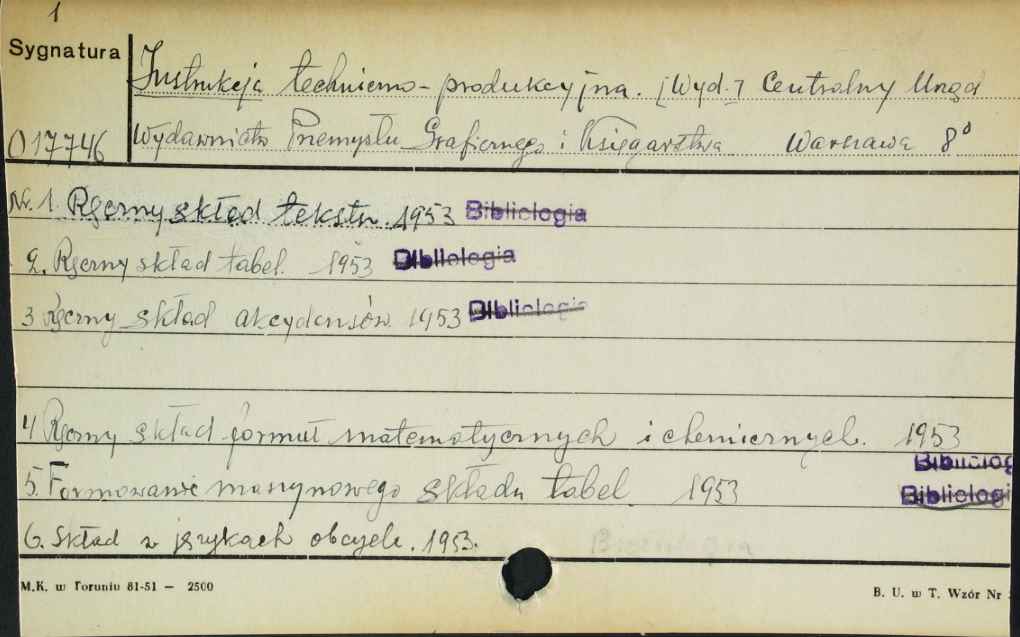 1
Sygnatura
Instrukcja techniczno-produkcyjna. [Wyd.] Centralny Urząd
O 17746 Wydawnictw Przemysłu Graficznego i Księgarstwa Warszawa 8°
Nr. 1. Ręczny skład tekstu. 1953 Bibliologia
2. Ręczny skład tabel. 1953 Bibliologia
3 Ręczny skład akcydensów. 1953 Bibliologia
4 Ręczny skład formuł matematycznych i chemicznych. 1953
Bibliolog
5. Formowanie maszynowego składu tabel 1953 Bibliologi
6. Skład w językach obcych. 1953.
M.K. w Toruniu 81-51 — 2500
B. U. w T. Wzór Nr